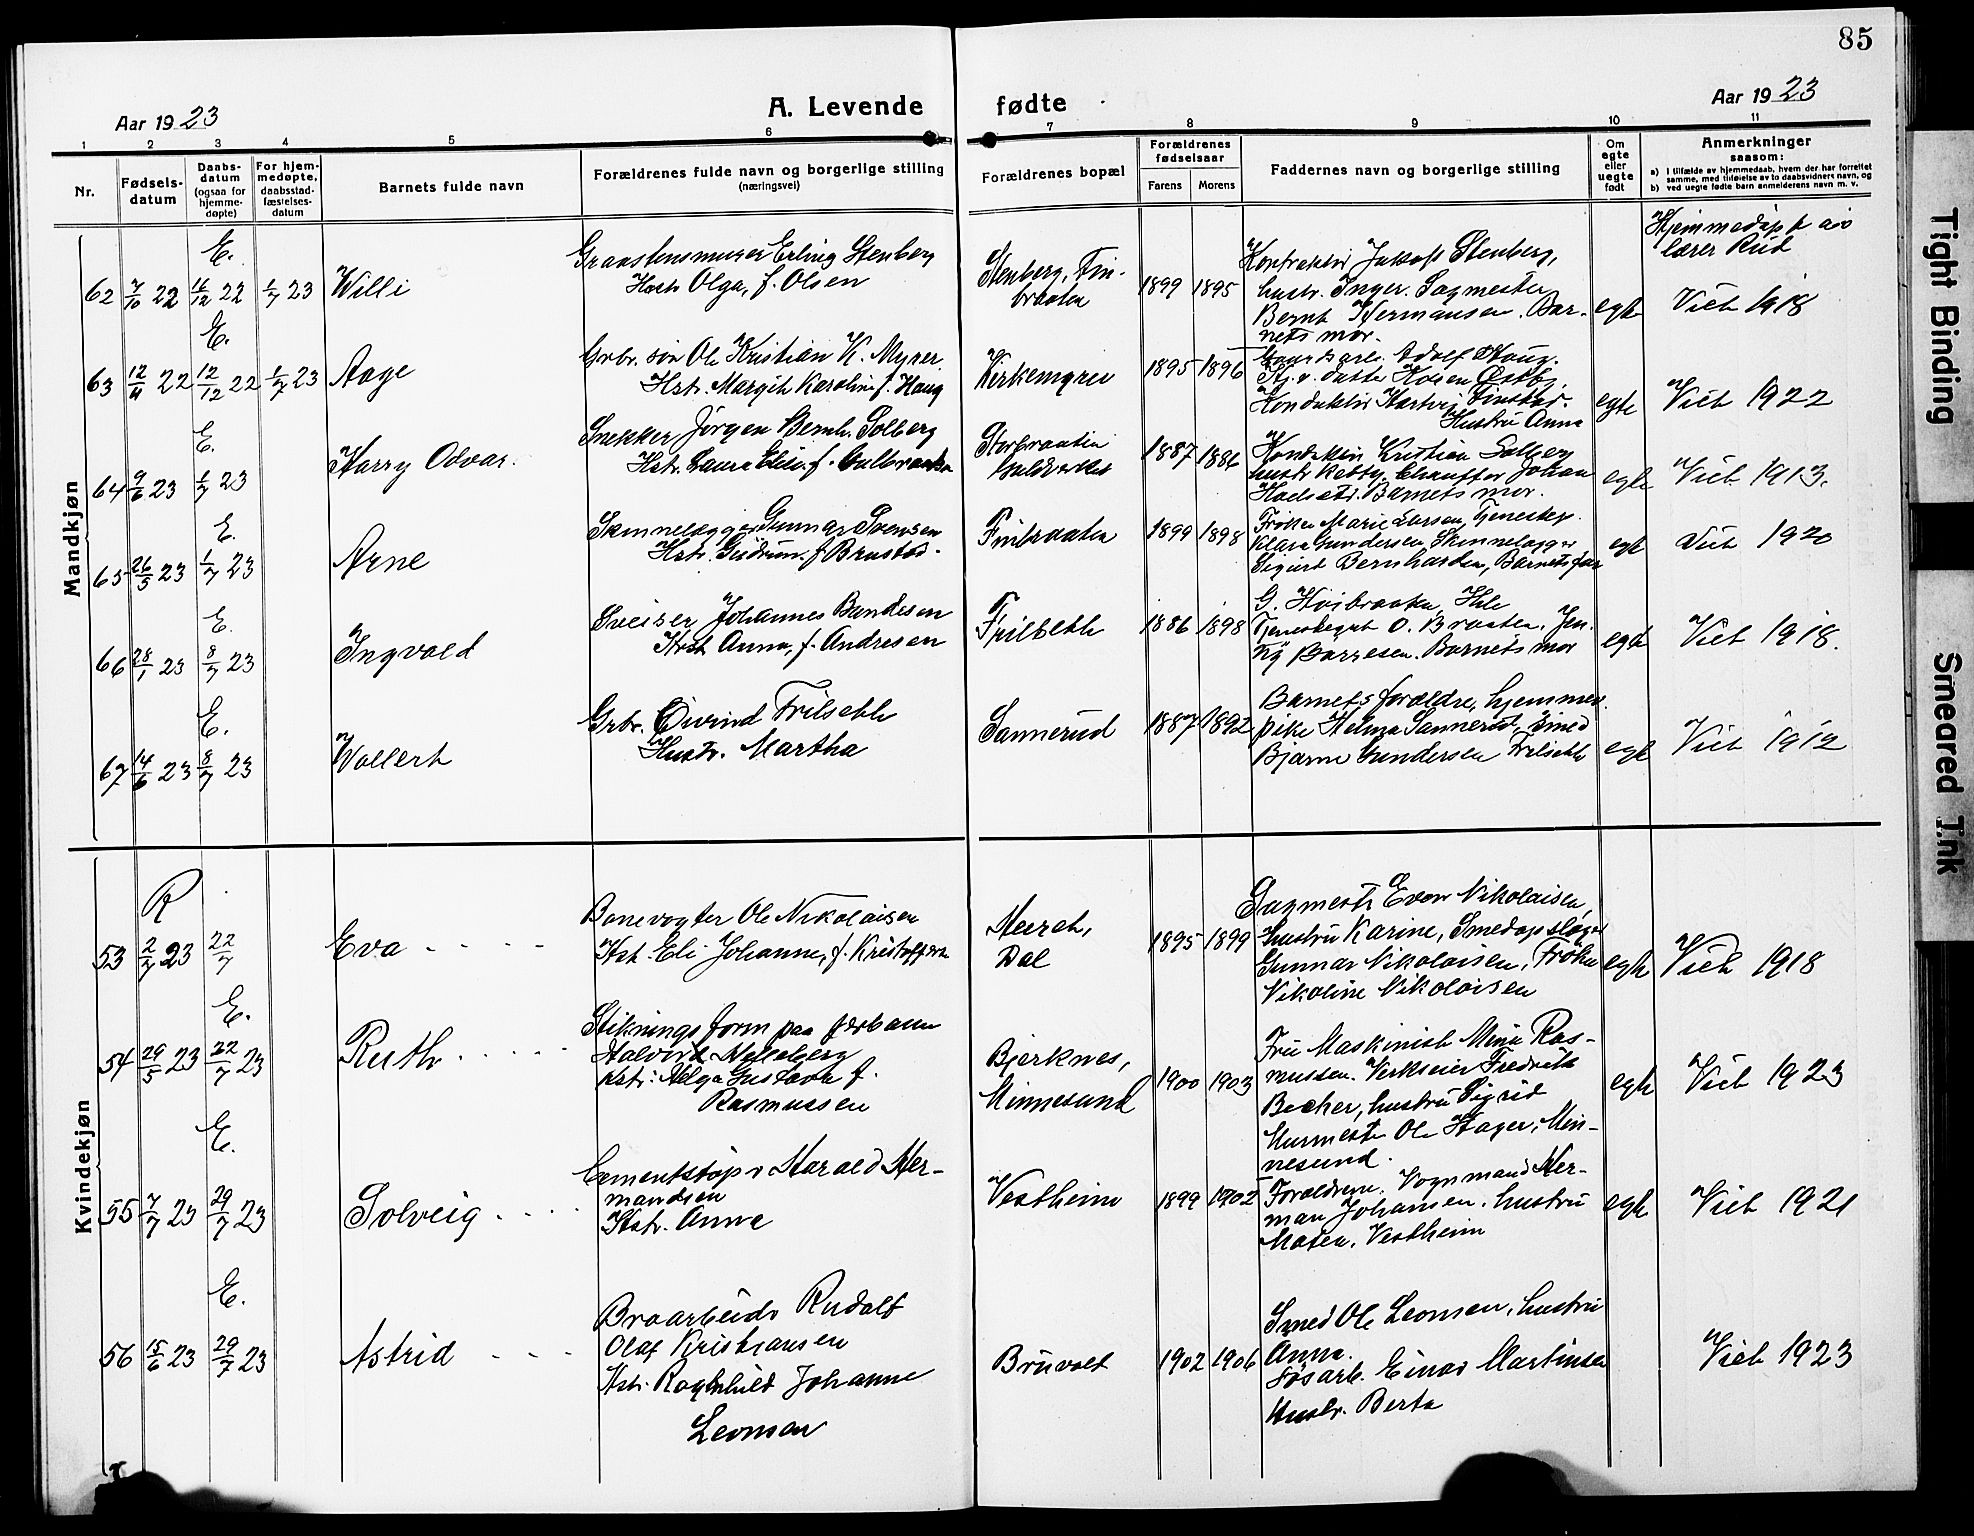 85
Aar 1923
A. Levende fødte
Aar 1923
1 2 3 4 5 6 7 8 9 10 11
Nr.
Fødsels-
datum
Daabs-
datum
(ogsaa for
hjemme-
døpte)
For hjem-
medøpte,
daabsstad-
fæstelses-
datum
Barnets fulde navn
Forældrenes fulde navn og borgerlige stilling
(næringsvei)
Forældrenes bopæl
Forældrenes
fødselsaar
Farens Morens
Faddernes navn og borgerlige stilling
Om
egte
eller
uegte
født
Anmerkninger
saasom:
a) I tilfælde av hjemmedaab, hvem der har forrettet
samme, med tilføielse av to daabsvidners navn, og
b) ved uegte fødte barn anmelderens navn m. v.
Mandkjøn
E.
62 7/10 22 16/12 22 1/7 23 Willi
Graastensmurer Erling Stenberg
Hustr. Olga, f. Olsen
Stenberg, Fin-
braaten
1899 1895
Jakob Stenberg,
hustr. Inger. Sagmester
Bernt Hermansen. Bar-
nets mor.
egte
Hjemmedøpt av
lærer Rud
Viet 1918
E.
63 12/11 22 12/12 22 1/7 23 Aage
Grbr. søn Ole Kristian K. Myrer
Hstr. Margit Karoline f. Haug
Kirkemyren
1895 1896
Gaardsarb. Adolf Haug.
Hj. v. datter Østby.
Konduktør Hartvig Finstad.
Hustru Anna
egte
Viet 1922
E.
64 9/6 23 1/7 23 Harry Odvar.
Snekker Jörgen Bernh. Solberg
Hstr. Laura Elis. f. Gulbraaten
Storbraaten
Guldverket
1887 1886
Konduktör Kristian Solberg
hustr. Chauffør Johan
Barnets mor.
egte
Viet 1913.
E.
65 26/5 23 1/7 23 Arne
Skinnelægger Gunnar Svensen
Hstr. Gudrun f. Brustad.
Finbraaten
1899 1898
Frøken Marie Larsen, Tjenestep.
Klara Gundersen Skinnelægger
Sigurd Bernhardsen, Barnets far
egte
Viet 1920
E.
66 28/1 23 8/7 23 Ingvald
Sveiser Johannes Bendesen
Hstr. Anna, f. Andresen
Frilseth
1886 1898
G. Høibraaten,
Tjenestegut O. Braaten, Jen-
ny Barnets mor
egte
Viet 1918.
E.
67 14/6 23 8/7 23 Wollert
Grbr. Eivind Frilseth
Hustr. Martha
Sannerud
1887 1892
Barnets forældre, hjemmev.
pike Helma Sannerud, Smed
Bjarne Gundersen Frilseth
egte
Viet 1912
Kvindekjøn
R
53 2/7 23 22/7 Eva
Banevogter Ole Nikolaisen
Hst. Eli Johanne, f. Kristoffersen
Dal
1895 1899
Sagmester Even Nikolaisen,
hustru Karine,
Gunnar Nikolaisen, Frøken
Nikoline Nikolaisen
egte
Viet 1918
E.
54 29/5 23 22/7 23 Ruth
Stikningsform. paa jerbanen
Halvord
Hstr: Helga Gustava f.
Rasmussen
Bjerknes,
Minnesund
1900 1903
Fru Maskinist Mina Ras-
mussen. Verkseier Fredrik
Becher, hustru Sigrid
Murmester Ole Hager, Min-
nesund.
egte
Viet 1923
E.
55 7/7 23 29/7 23 Solveig
Cementstøper Harald Her-
mandsen
Hstr. Anna
Vestheim
1899 1902
Forældrene. Vognmand Her-
man Johansen. hustru
Maren. Vestheim
egte
Viet 1921
E.
56 15/6 23 29/7 23 Astrid
Broarbeider Rudolf
Olaf Kristiansen
Hstr. Ragnhild Johanne
Leonsen
Bruvolt
1902 1906
Smed Ole Leonsen, hustru
Anna.
Einar Martinsen
Hustr. Berta
Viet 1923
Tight Binding
Smeared Ink